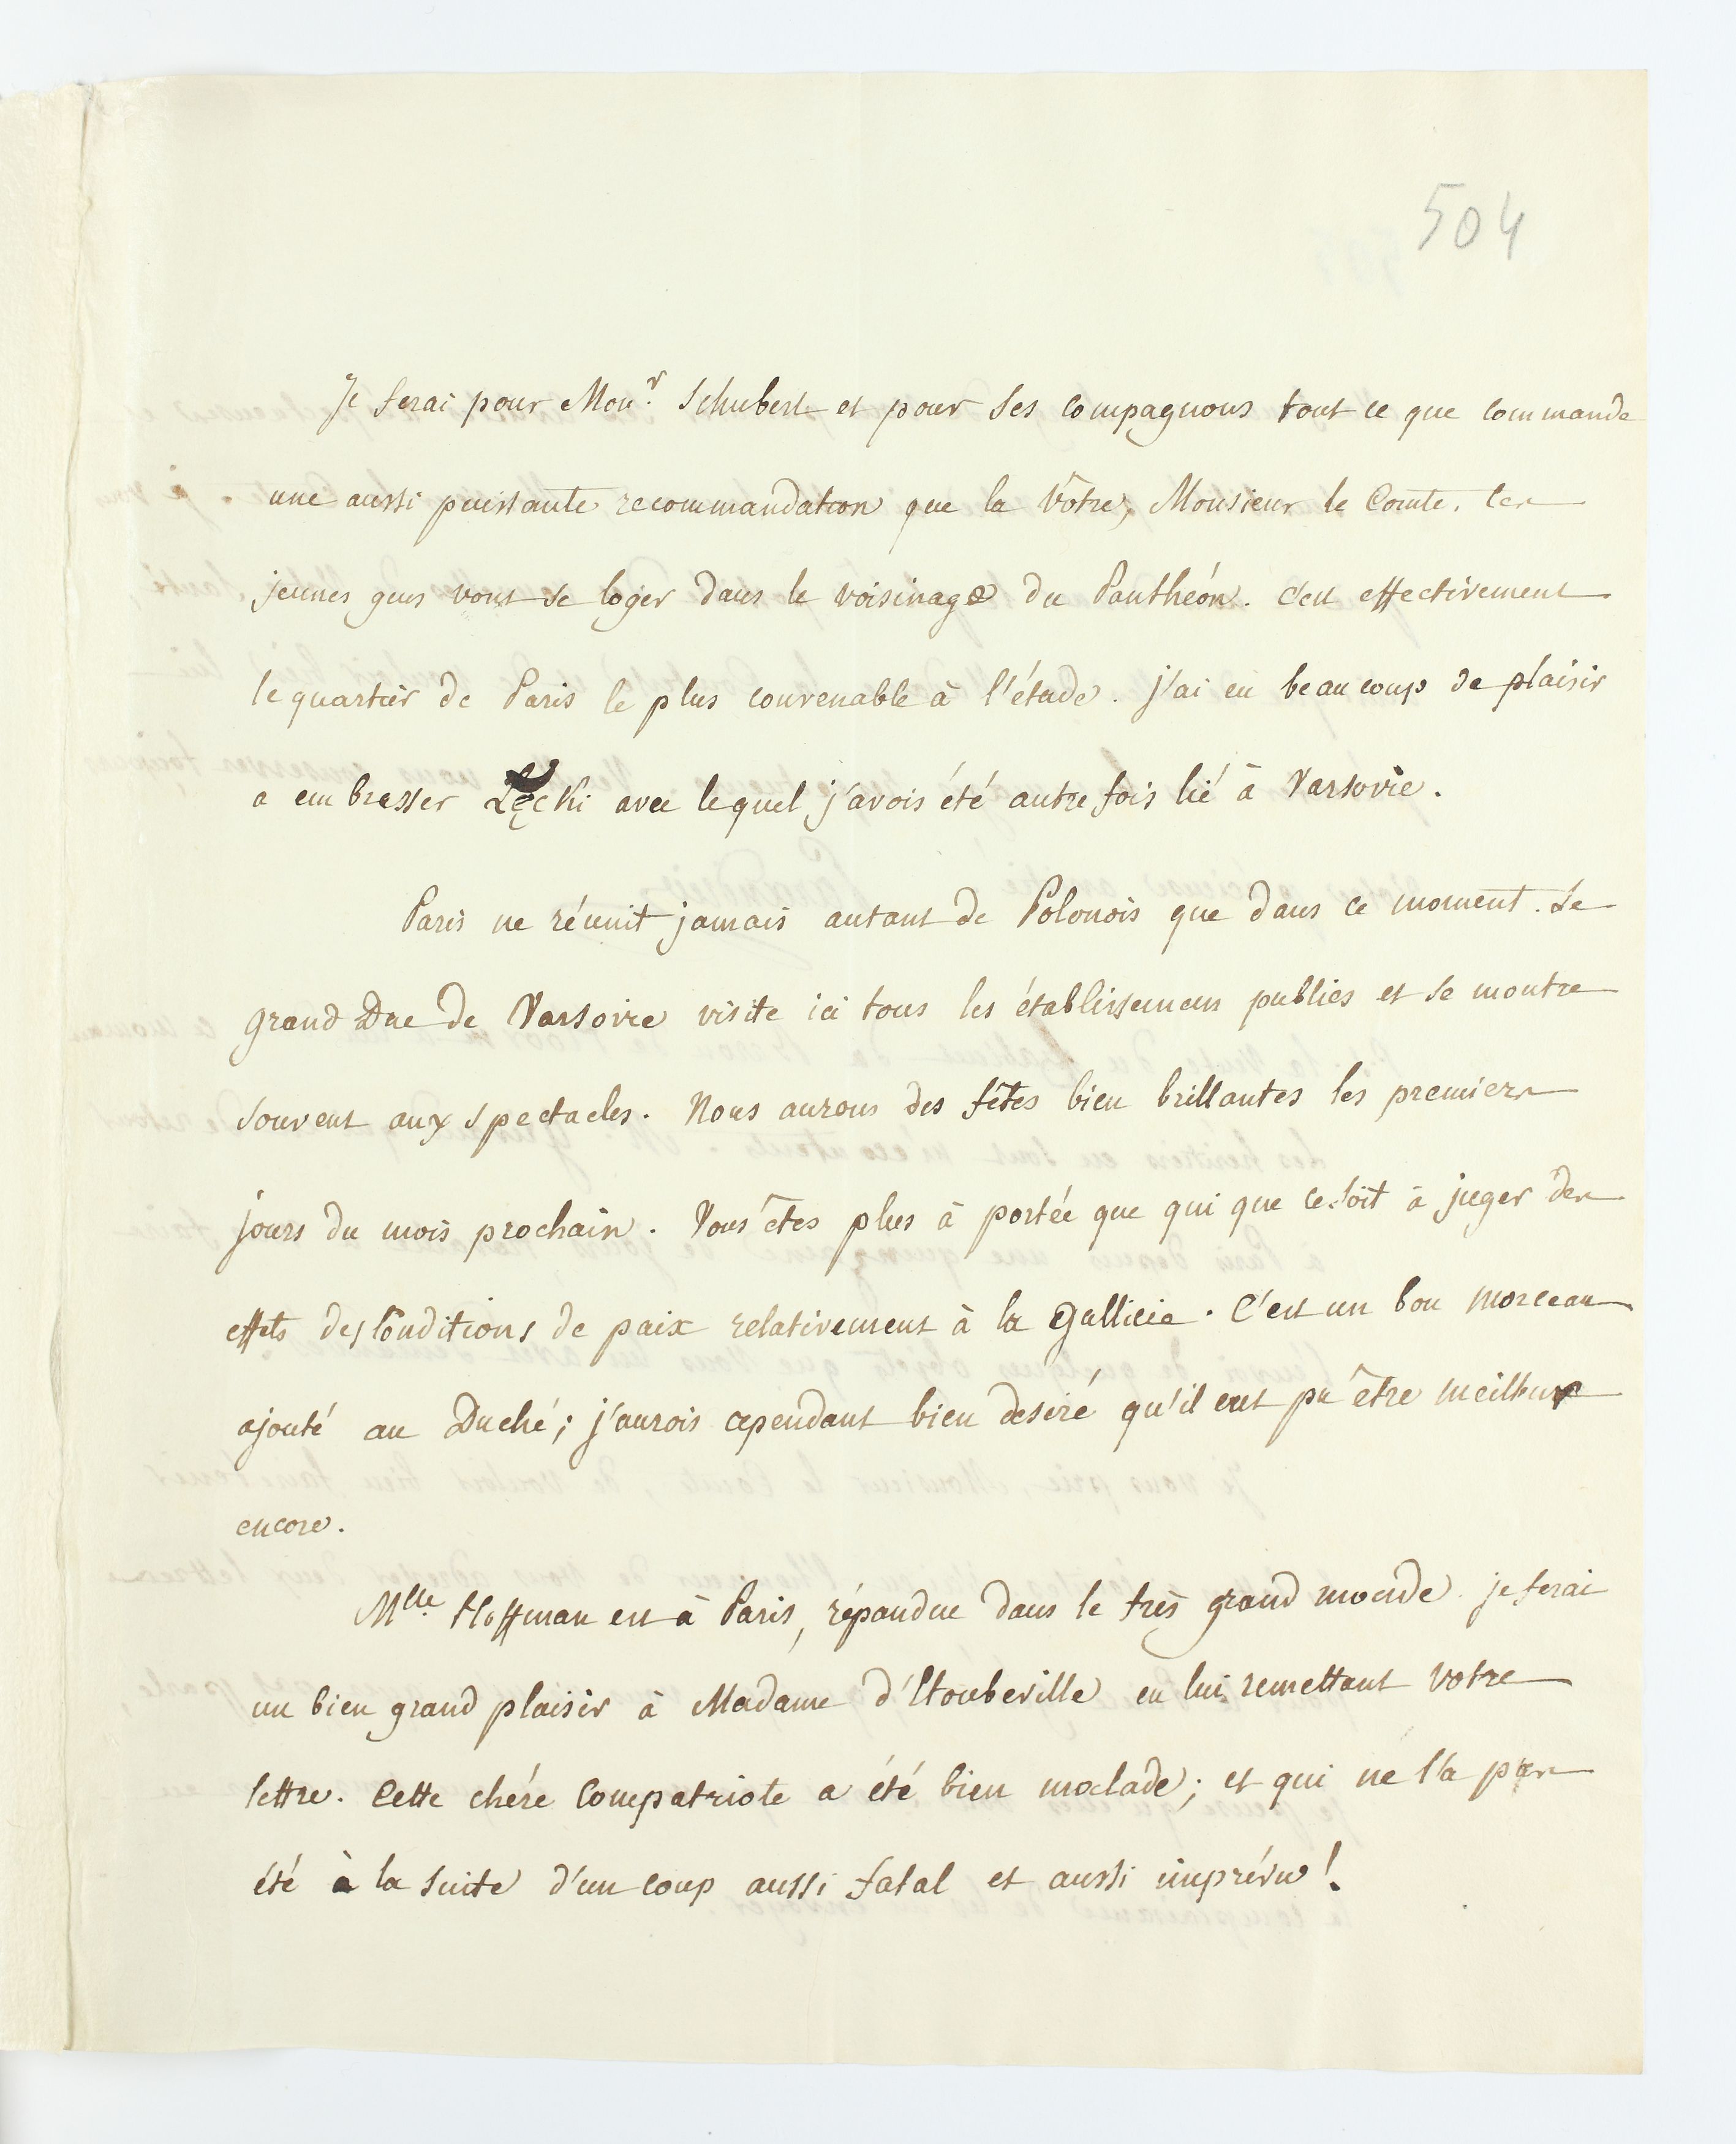 504
Je ferai pour Monr. Schubert et pour ses compagnons tout ce que commande
une aussi puissante recommandation que la Vôtre, Monsieur le Comte. Ces
jeunes gens vont se loger dans le voisinage du Panthéon. C'est effectivement
le quartier de Paris le plus convenable à l'étude. J'ai eu beaucoup de plaisir
a embrasser Łęcki avec lequel j'avois été autrefois lié à Varsovie.
Paris ne réunit jamais autant de Polonois que dans ce moment. Le
grand Duc de Varsovie visite ici tous les établissemens publics et se montre
souvent aux spectacles. Nous aurons des fêtes bien brillantes les premiers
jours du mois prochain. Vous êtes plus à portée que qui que ce soit à juger des
effets des Conditions de paix relativement à la Gallicie. C'est un bon morceau
ajouté au Duché; j'aurois cependant bien desiré qu'il eut pu être meilleur
encore.
Mlle. Hoffman est à Paris, répandue dans le très grand monde. je ferai
un bien grand plaisir à Madame d'Itouberville en lui remettant votre
lettre. Cette chére Compatriote a été bien malade; et qui ne l'a pas
été à la suite d'un coup aussi fatal et aussi imprévu!